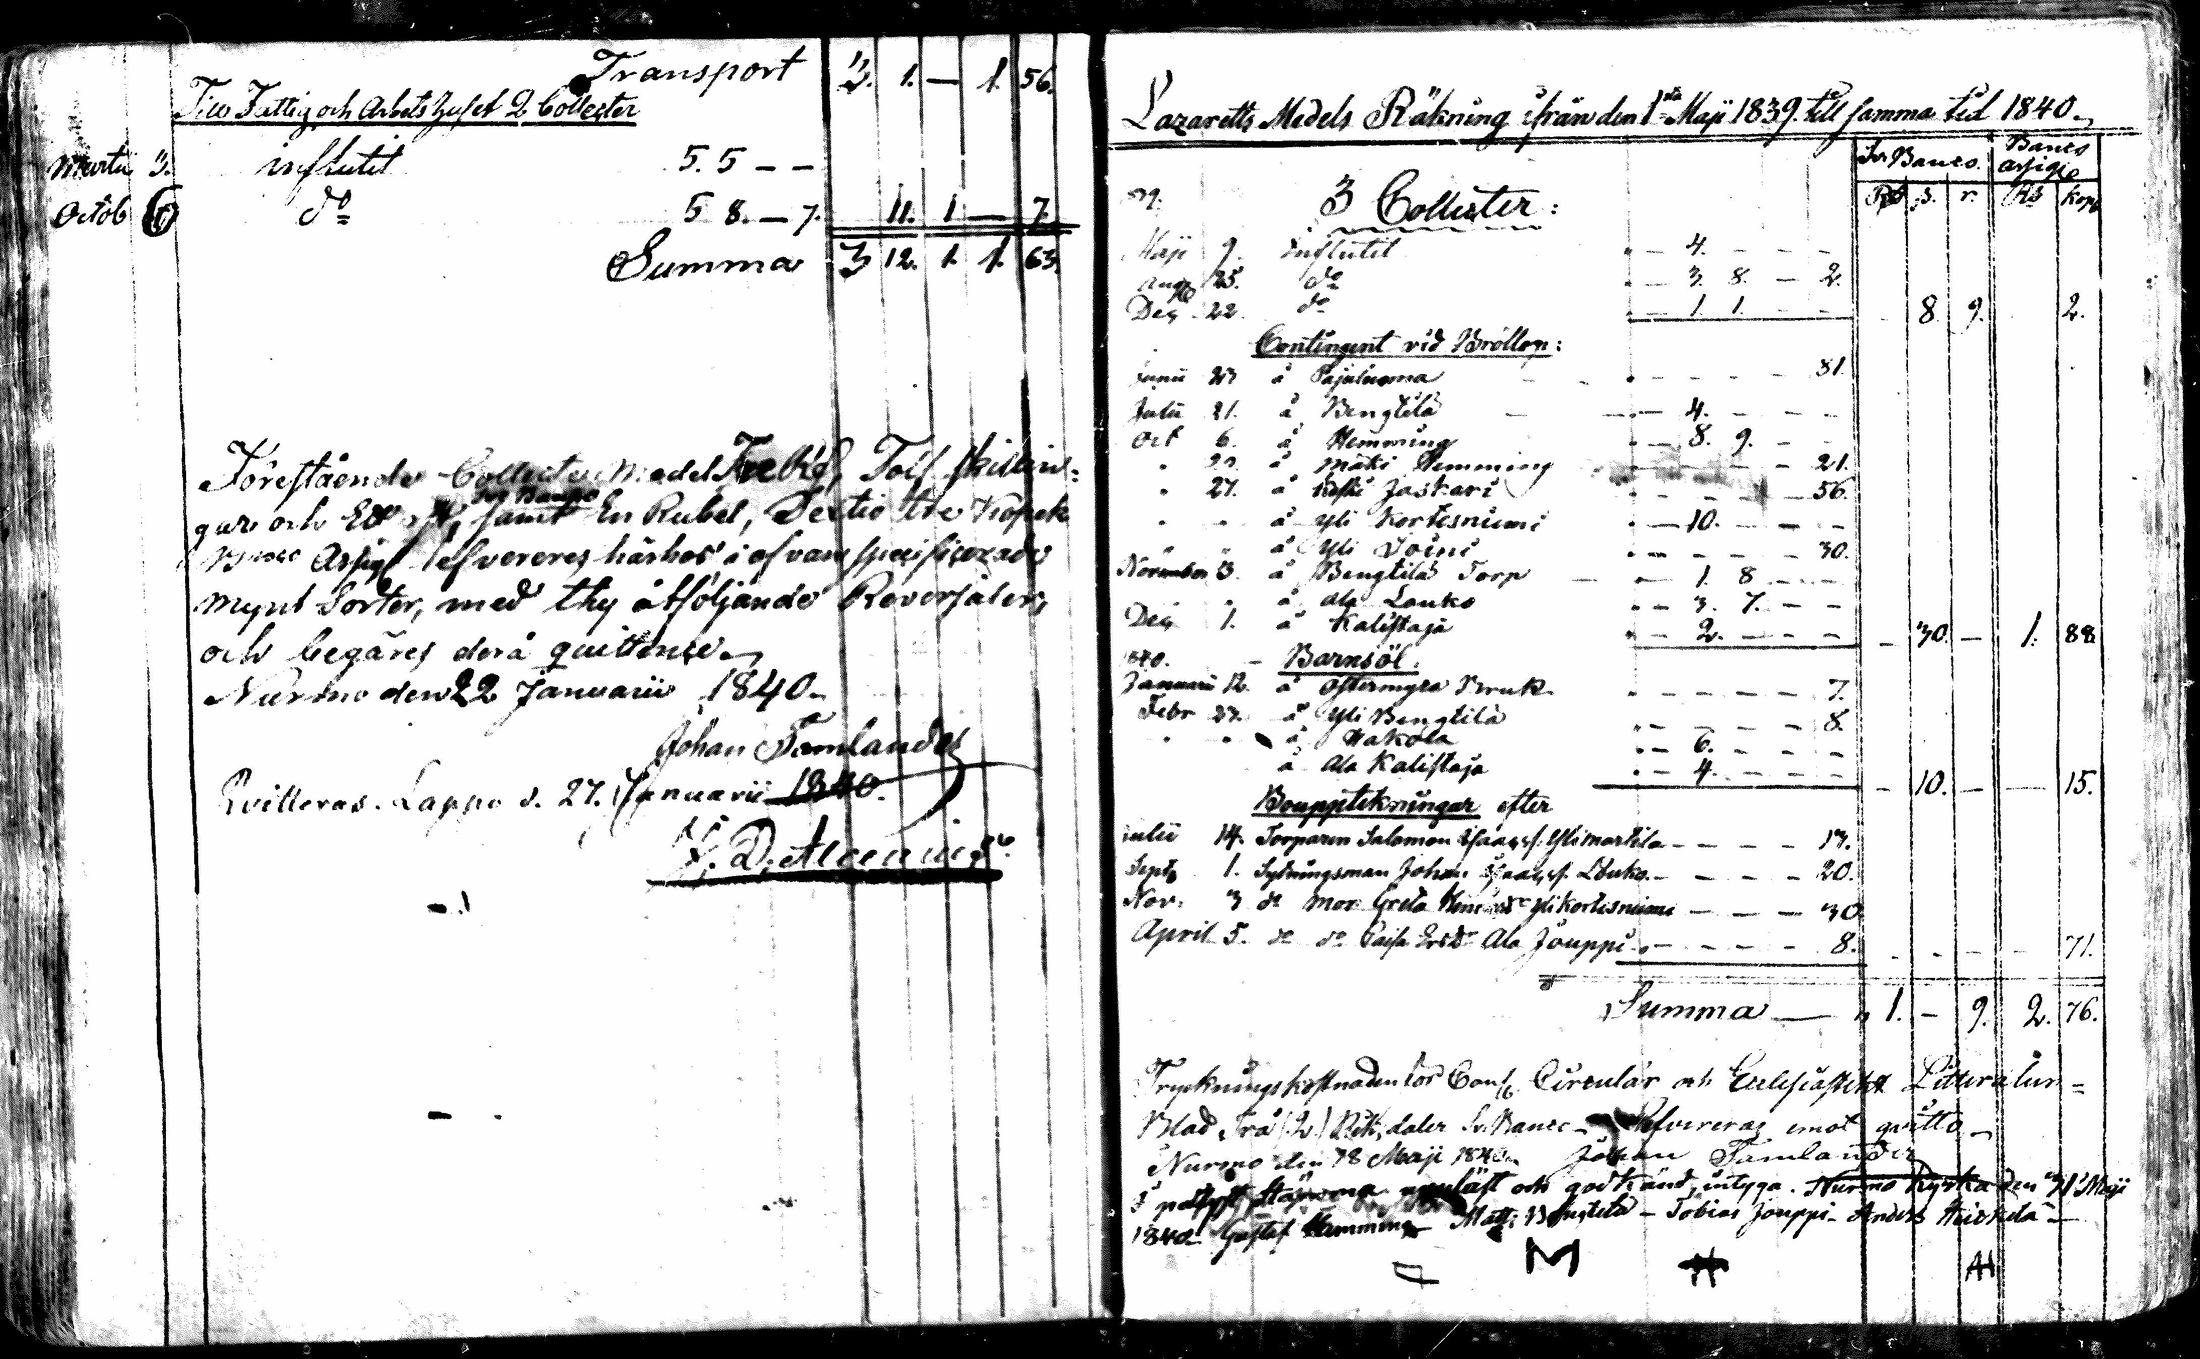 Transport 2. 1. — 1. 56.
Till Fattig och Arbetshuset 2 Collecter
Martii 3. influtit 5. 5 — —
Octob 6 do 5 8. — 7. 11. 1 — 7.
Summa 3 12. 1. 1. 63.
Förestående Collecte Medel Tre Rd, Tolf skillin-
gar och Ett samt En Rubel, Sextio tre Kopek
Sv Banco
Banco Assign lefvereres härhos i ofvan specificerade
mynt Sorter, med thy åtföljande Reversaler,
och begäres derå quittence.
Nurmo den 22 Januarii 1840.
Johan Tamlander
Qvitteras. Lappo d. 27. Januarii 1840.
Lazaretts Medels Räkning ifrån den 1sta Maji 1839. till samma tid 1840.
Sv Banco. Banco assign
Rd s. r. Rb kop
39. 3 Collecter:
Maji 9. influtit " — 4. — — —
Aug 25. do " — 3. 8. — 2.
Dec 22. do " — 1. 1. — — 8. 9. 2.
Contingent vid Bröllop:
Junii 23 å Pajuluoma " — — — — 31.
Julii 21. å Bengtilä — 4. — — —
Oct 6. å Hemming " — 8. 9. — —
å Mäki Hemming — 21.
" 27. å Jaskari — 56.
" " å Yli Kortesniemi " — 10. — — —
å Yli Joini " — — — — 30.
November 3. å Bengtilä Torp — " — 1. 8 — — —
å Ala Louko " — 3. 7. — —
Dec 1. å Kalistaja " — 2. — — — — 30. — 1. 88
1840. — Barnsöl.
Januarii 12. å Östermyra Bruk " — — — — 7.
Febr 23. å Yli Bengtilä " — — — — 8.
" " å Hakola " — 6. — — —
å Ala Kalistaja " — 4. — — — — 10. — — 15.
Bouppteckningar efter
Julii 14. Torparen Salomon Isaacss. Ylimartila — — — — 13.
Sept 1. Sytningsman Johan Isaacss. Louko. — — — — 20.
Nov. 3 do mor Greta Ylikortesniemi — — — 30
April 5. do do Caisa Ala Jouppi " — — — — 8. 71.
Summa — " 1. — 9. 2. 76.
Tryckningskostnaden för Cons. Circulär och Ecclesiastikt Litteratur-
Blad, Två (2) Rik, daler Sv. Banco — lefvereras emot qvitto —
Nurmo den 18 Maji 1840. Johan Tamlander
stämma uppläst och godkänd, intyga. Nurmo Kyrka den 31 Maji
1840. Gustaf Hemming — Matts Bengtilä — Tobias Jouppi — Anders Heikkilä —
M H AH